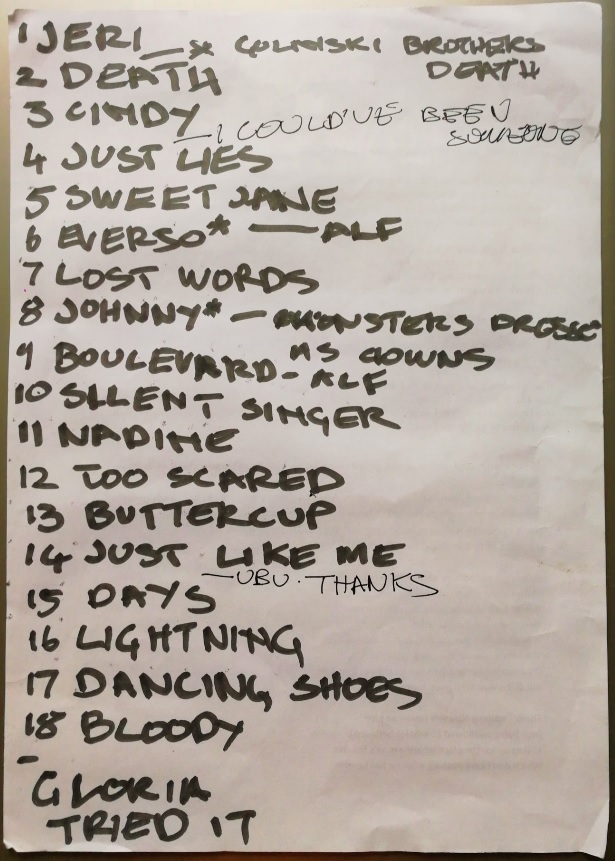 1 JERI — * GOLINSKI BROTHERS
DEATH
2 DEATH
3 CINDY — I COULD'VE BEEN
SOMEONE
4 JUST LIES
5 SWEET JANE
6 EVERSO* — ALF
7 LOST WORDS
8 JOHNNY* — MONSTERS DRESSED
AS CLOWNS
9 BOULEVARD - ALF
10 SILENT SINGER
11 NADINE
12 TOO SCARED
13 BUTTERCUP
14 JUST LIKE ME
— UBU. THANKS
15 DAYS
16 LIGHTNING
17 DANCING SHOES
18 BLOODY
-
GLORIA
TRIED IT